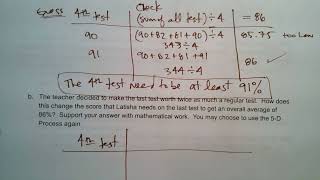 Guess 4th test
Check
(sum of all test) ÷ 4 = 86
90 (90 + 82 + 81 + 90) ÷ 4 85.75 too low
343 ÷ 4
91 (90 + 82 + 81 + 91)
344 ÷ 4 86 ✓
The 4th test need to be at least 91%
b. The teacher decided to make the last test worth twice as much a regular test. How does
this change the score that Latisha needs on the last test to get an overall average of
86%? Support your answer with mathematical work. You may choose to use the 5-D
Process again
4th test